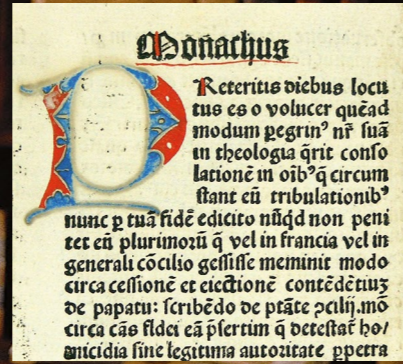 Monachus
PReteritis diebus locu
tus es o volucer quēad
modum ꝑegrinꝰ nr̄ suā
in theologia q̄rit conso
lationē in oībꝰ q̄ circum
stant eū tribulationibꝰ
nunc ꝑ tuā fidē edicito nūqd non peni
tet eū plurimorū q̄ vel in francia vel in
generali cōcilio gessisse meminit modo
circa cessionē et eiectionē contēdētiuꝫ
de papatu: scribēdo de ptāte ꝯcilij. mō
circa cās fidei eā p̄sertim q̄ detestat̄ ho/
micidia sine legitima autoritate ꝑpetra